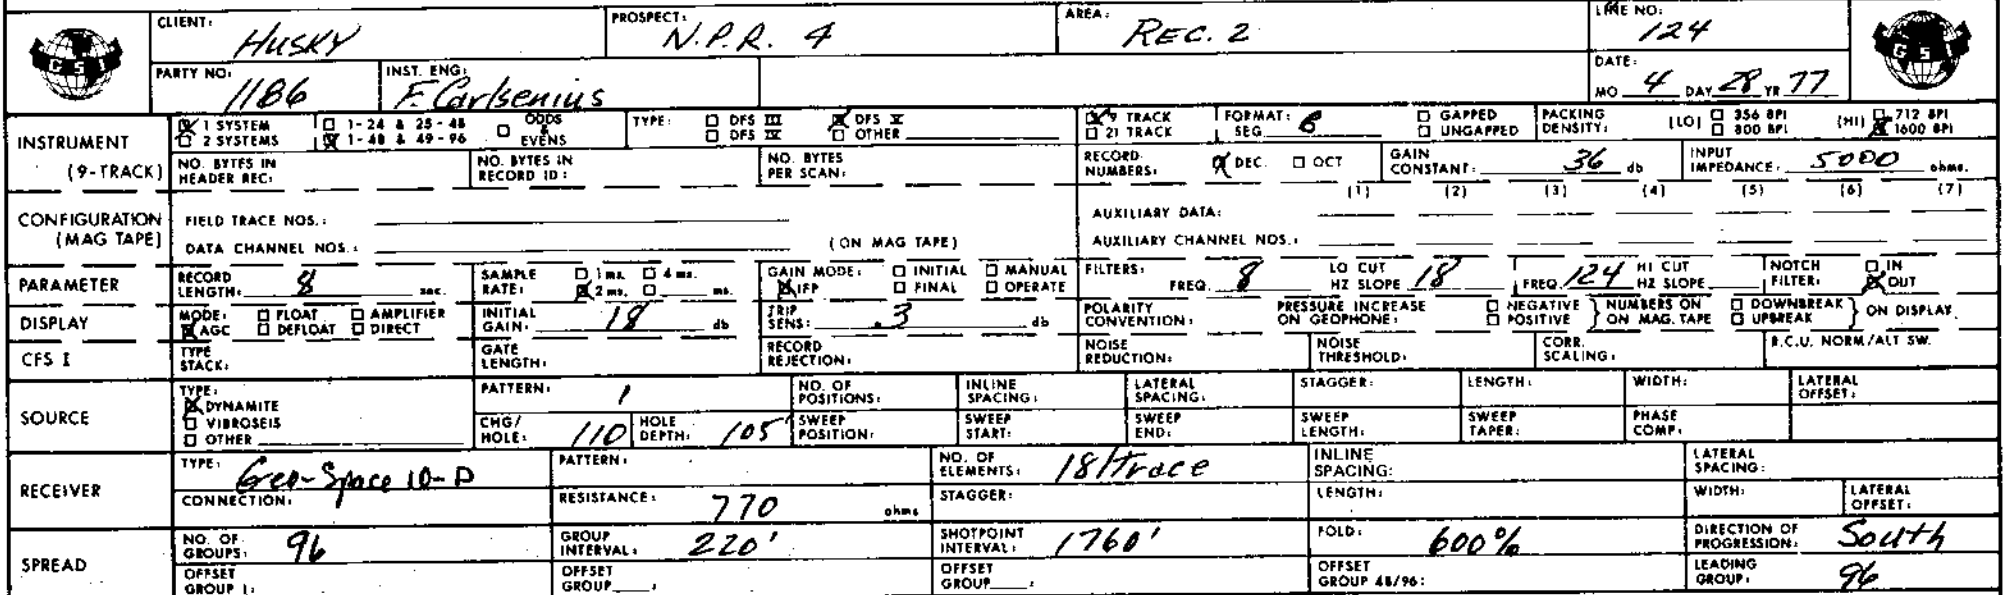 CLIENT: HUSKY PROSPECT: N.P.R. 4 AREA: REC. 2 LINE NO: 124
GSI GSI
PARTY NO: 1186 INST. ENG: F. Carlsenius DATE: MO 4 DAY 28 YR 77
INSTRUMENT (9-TRACK)
☒ 1 SYSTEM ☐ 1-24 & 25-48 ☐ ODDS & EVENS TYPE: ☐ DFS III ☒ DFS V ☒ 9 TRACK FORMAT: SEG 6 ☐ GAPPED PACKING DENSITY: (LO) ☐ 356 BPI (HI) ☐ 712 BPI
☐ 2 SYSTEMS ☒ 1-48 & 49-96 ☐ DFS IV ☐ OTHER ☐ 21 TRACK ☐ UNGAPPED ☐ 800 BPI ☒ 1600 BPI
NO. BYTES IN HEADER REC: NO. BYTES IN RECORD ID: NO. BYTES PER SCAN: RECORD NUMBERS: ☒ DEC. ☐ OCT GAIN CONSTANT: 36 db INPUT IMPEDANCE: 5000 ohms.
CONFIGURATION (MAG TAPE)
(1) (2) (3) (4) (5) (6) (7)
FIELD TRACE NOS.: AUXILIARY DATA:
DATA CHANNEL NOS.: (ON MAG TAPE) AUXILIARY CHANNEL NOS.:
PARAMETER RECORD LENGTH: 8 sec. SAMPLE RATE: ☐ 1 ms. ☐ 4 ms. ☒ 2 ms. ☐ ms. GAIN MODE: ☐ INITIAL ☐ MANUAL ☒ IFP ☐ FINAL ☐ OPERATE FILTERS: FREQ. 8 LO CUT HZ SLOPE 18 FREQ. 124 HI CUT HZ SLOPE NOTCH FILTER: ☐ IN ☒ OUT
DISPLAY MODE: ☐ FLOAT ☐ AMPLIFIER ☒ AGC ☐ DEFLOAT ☐ DIRECT INITIAL GAIN: 18 db TRIP SENS: .3 db POLARITY CONVENTION: PRESSURE INCREASE ON GEOPHONE: ☐ NEGATIVE ☐ POSITIVE } NUMBERS ON MAG. TAPE ☐ DOWNBREAK ☐ UPBREAK } ON DISPLAY
CFS I TYPE STACK: GATE LENGTH: RECORD REJECTION: NOISE REDUCTION: NOISE THRESHOLD: CORR. SCALING: R.C.U. NORM/ALT SW.
SOURCE TYPE: ☒ DYNAMITE ☐ VIBROSEIS ☐ OTHER
PATTERN: 1 NO. OF POSITIONS: INLINE SPACING: LATERAL SPACING: STAGGER: LENGTH: WIDTH: LATERAL OFFSET:
CHG/HOLE: 110 HOLE DEPTH: 105' SWEEP POSITION: SWEEP START: SWEEP END: SWEEP LENGTH: SWEEP TAPER: PHASE COMP:
RECEIVER TYPE: Geo-Space 10-D PATTERN: NO. OF ELEMENTS: 18/Trace INLINE SPACING: LATERAL SPACING:
CONNECTION: RESISTANCE: 770 ohms STAGGER: LENGTH: WIDTH: LATERAL OFFSET:
SPREAD NO. OF GROUPS: 96 GROUP INTERVAL: 220' SHOTPOINT INTERVAL: 1760' FOLD: 600% DIRECTION OF PROGRESSION: South
OFFSET GROUP 1: OFFSET GROUP : OFFSET GROUP : OFFSET GROUP 48/96: LEADING GROUP: 96